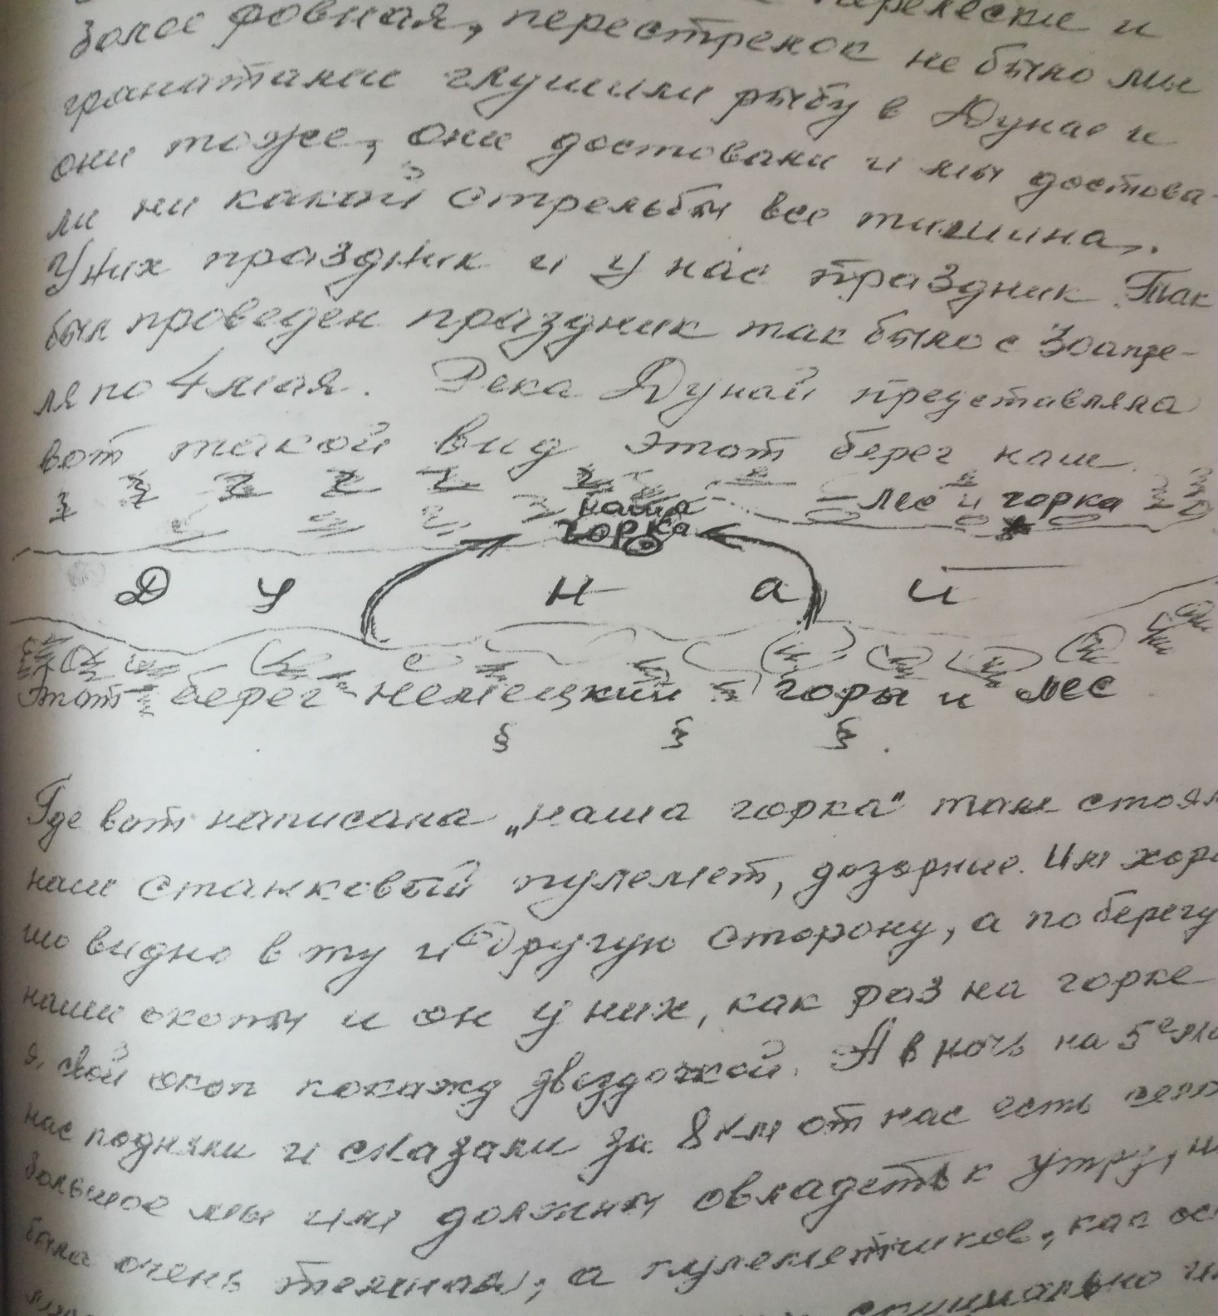 перелески и
более ровная, перестрелок не было мы
гранатами глушили рыбу в Дунае и
они тоже, они доставали и мы достова-
ли ни какой стрельбы все тишина,.
У них праздник и у нас праздник. Так
был проведен праздник так было с 30 апре-
ля по 4 мая. Река Дунай представляла
вот такой вид этот берег наш.
лес и горка
наша
горка
Д У Н А Й
этот берег немецкий горы и лес
Где вот написана „наша горка" там стоял
наш станковый пулемет, дозорные. Им хоро
шо видно в ту и другую сторону, а по берегу
наши окопы и он у них, как раз на горке
я, свой окоп покажу звездочкой. А в ночь на 5е
нас подняли и сказали за 8 км от нас есть село
большое мы им должны овладеть к утру,
была очень темная, а пулеметчиков, как
специально